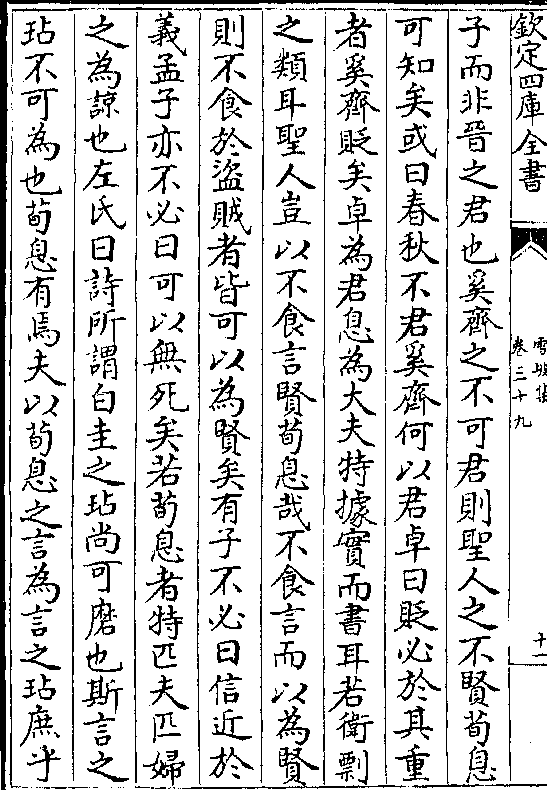 欽定四庫全書
雪坡集
卷三十九
十一
子而非晉之君也奚齊之不可君則聖人之不賢荀息
可知矣或曰春秋不君奚齊何以君卓曰貶必於其重
者奚齊貶矣卓為君息為大夫特據實而書耳若衛剽
之類耳聖人豈以不食言賢荀息哉不食言而以為賢
則不食於盜賊者皆可以為賢矣有子不必曰信近於
義孟子亦不必曰可以無死矣若荀息者特匹夫匹婦
之為諒也左氏曰詩所謂白圭之玷尚可磨也斯言之
玷不可為也荀息有焉夫以荀息之言為言之玷庶乎